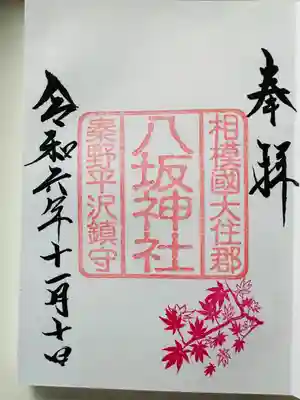 奉拝
相模國大住郡
八坂神社
秦野平沢鎮守
令和六年十一月十日